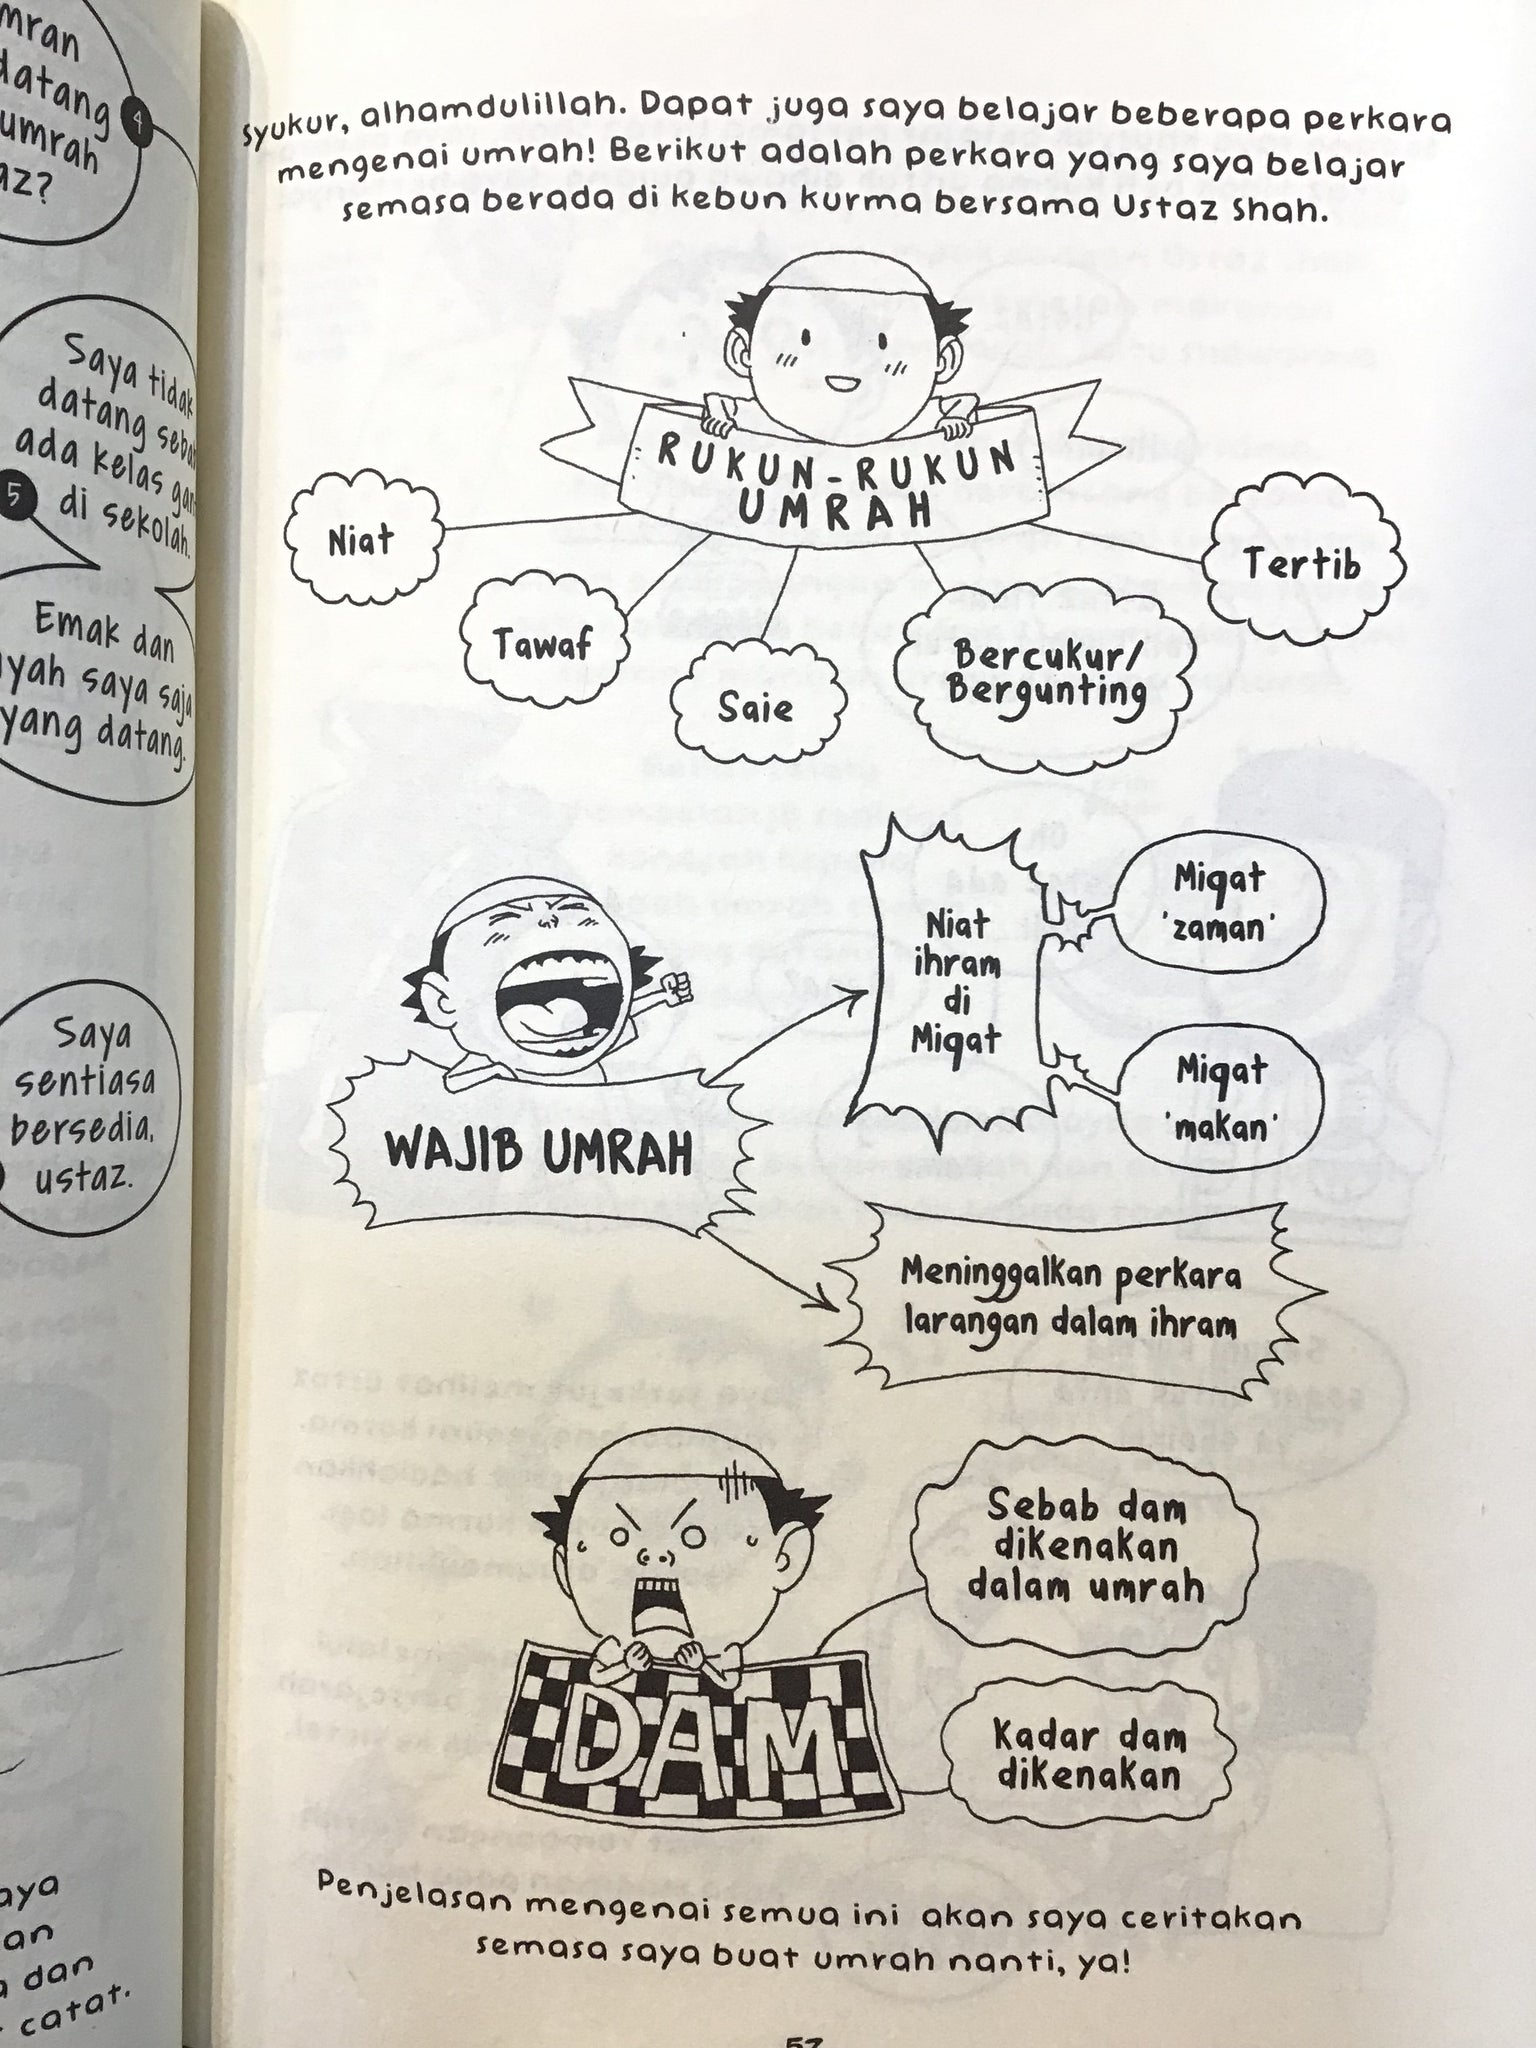 datang
umrah
4
Saya tidak
datang
ada kelas
di sekolah.
5
Emak dan
saya saja
yang datang.
Saya
sentiasa
bersedia,
ustaz.
dan
catat.
Syukur, alhamdulillah. Dapat juga saya belajar beberapa perkara
mengenai umrah! Berikut adalah perkara yang saya belajar
semasa berada di kebun kurma bersama Ustaz Shah.
RUKUN-RUKUN
UMRAH
Niat
Tawaf
Saie
Bercukur/
Bergunting
Tertib
WAJIB UMRAH
Niat
ihram
di
Miqat
Miqat
'zaman'
Miqat
'makan'
Meninggalkan perkara
larangan dalam ihram
DAM
Sebab dam
dikenakan
dalam umrah
Kadar dam
dikenakan
Penjelasan mengenai semua ini akan saya ceritakan
semasa saya buat umrah nanti, ya!
57